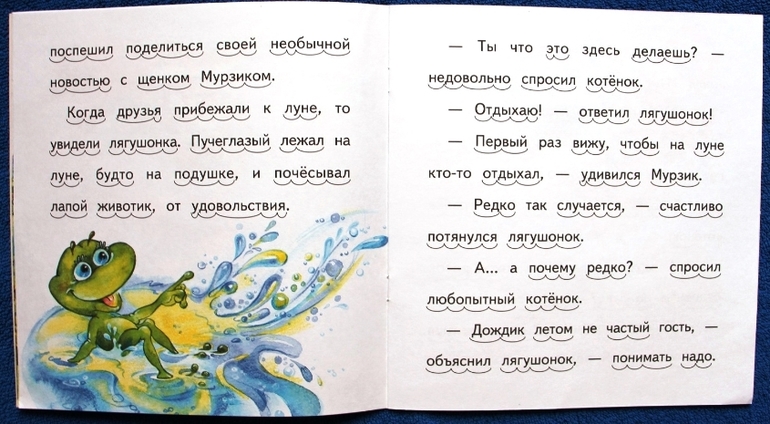 поспешил поделиться своей необычной
новостью с щенком Мурзиком.
Когда друзья прибежали к луне, то
увидели лягушонка. Пучеглазый лежал на
луне, будто на подушке, и почёсывал
лапой животик, от удовольствия.
— Ты что это здесь делаешь? —
недовольно спросил котёнок.
— Отдыхаю! — ответил лягушонок!
— Первый раз вижу, чтобы на луне
кто-то отдыхал, — удивился Мурзик.
— Редко так случается, — счастливо
потянулся лягушонок.
— А... а почему редко? — спросил
любопытный котёнок.
— Дождик летом не частый гость, —
объяснил лягушонок, — понимать надо.